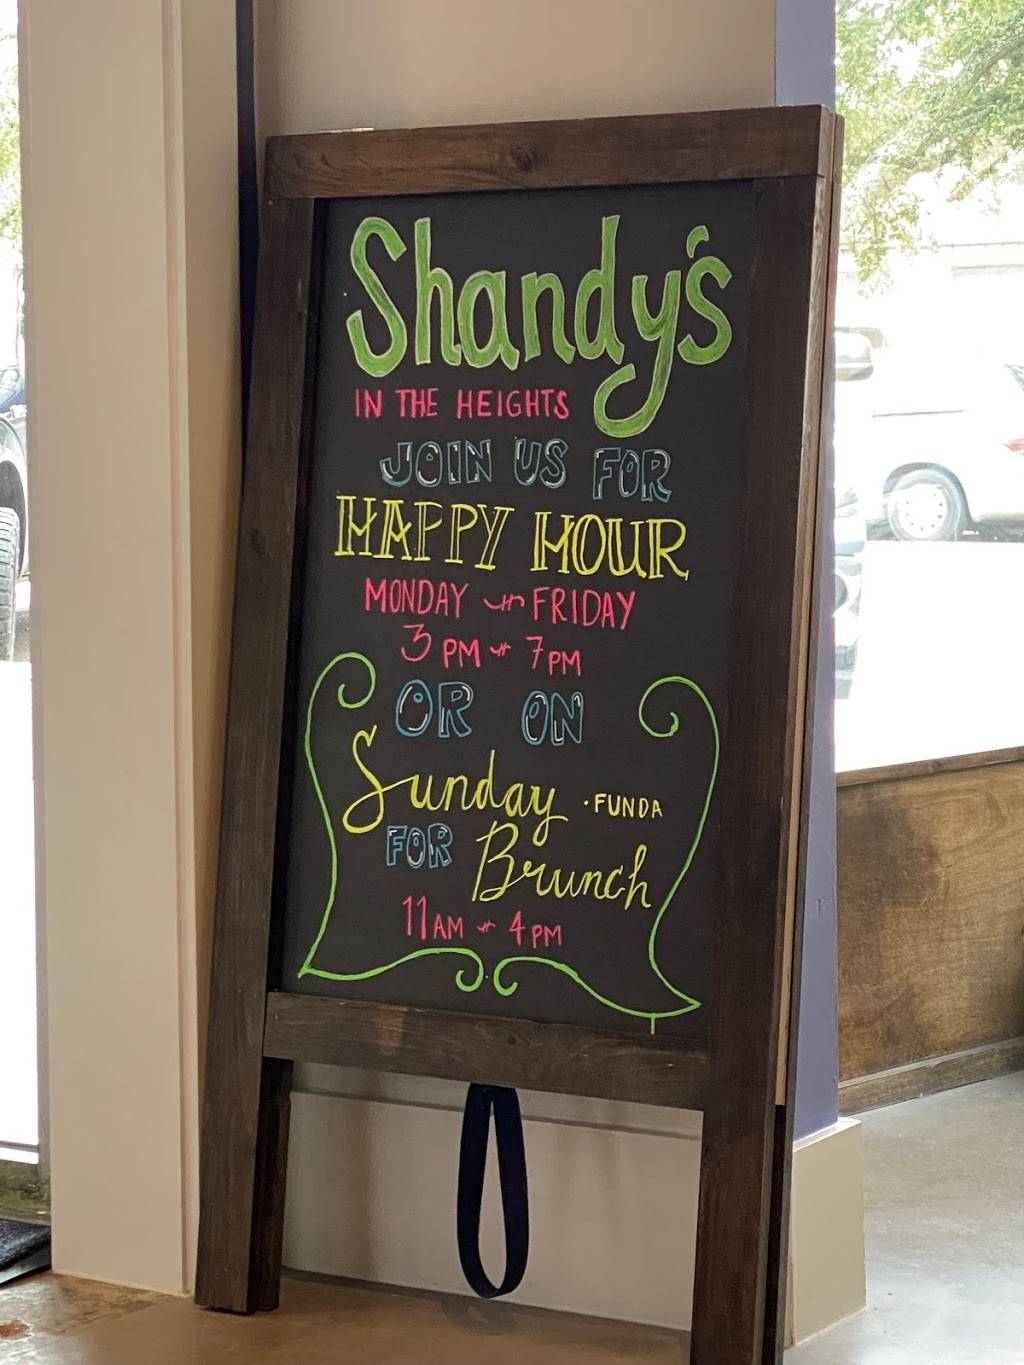 Shandy's
IN THE HEIGHTS
JOIN US FOR
HAPPY HOUR
MONDAY - FRIDAY
3 PM - 7 PM
OR ON
Sunday · FUNDA
FOR Brunch
11 AM - 4 PM